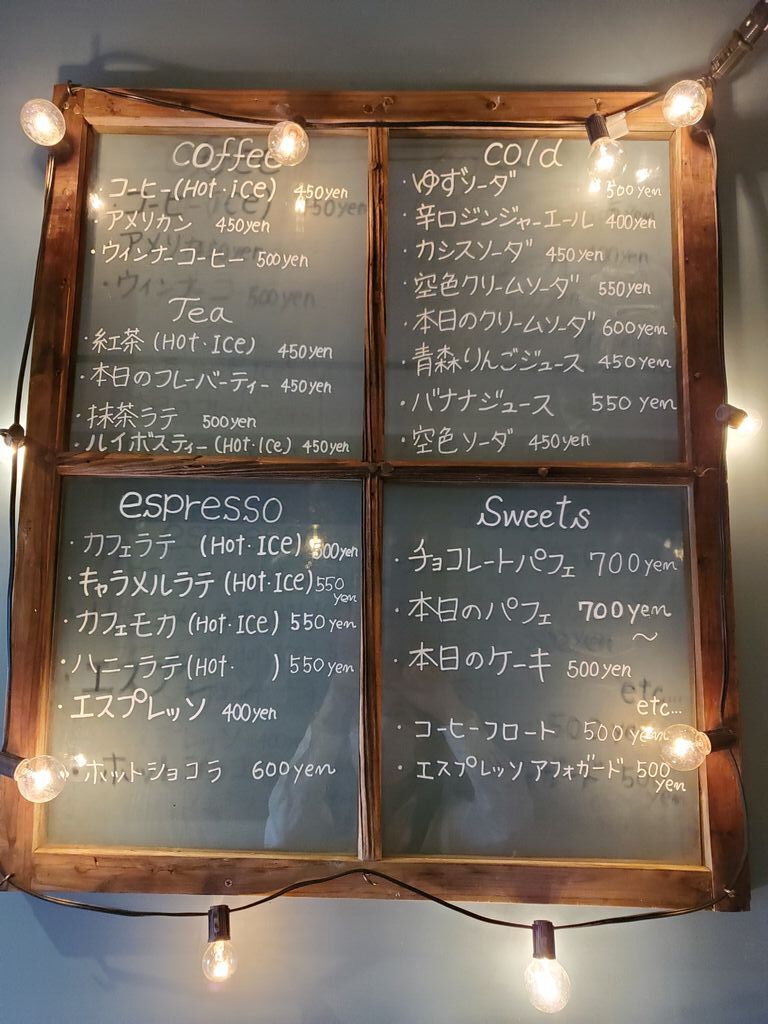 coffee
・コーヒー(Hot・ice) 450yen
・アメリカン 450yen
・ウィンナーコーヒー 500yen
Tea
・紅茶 (Hot・Ice) 450yen
・本日のフレーバーティー 450yen
・抹茶ラテ 500yen
・ルイボスティー(Hot・Ice) 450yen
cold
・ゆずソーダ 500yen
・辛口ジンジャーエール 400yen
・カシスソーダ 450yen
・空色クリームソーダ 550yen
・本日のクリームソーダ 600yen
・青森りんごジュース 450yen
・バナナジュース 550yen
・空色ソーダ 450yen
espresso
・カフェラテ (Hot・ICE) 500yen
・キャラメルラテ (Hot・Ice) 550yen
・カフェモカ (Hot・Ice) 550yen
・ハニーラテ(Hot・ ) 550yen
・エスプレッソ 400yen
・ホットショコラ 600yen
Sweets
・チョコレートパフェ 700yen
・本日のパフェ 700yen〜
・本日のケーキ 500yen
etc...
・コーヒーフロート 500yen
・エスプレッソ アフォガード 500yen